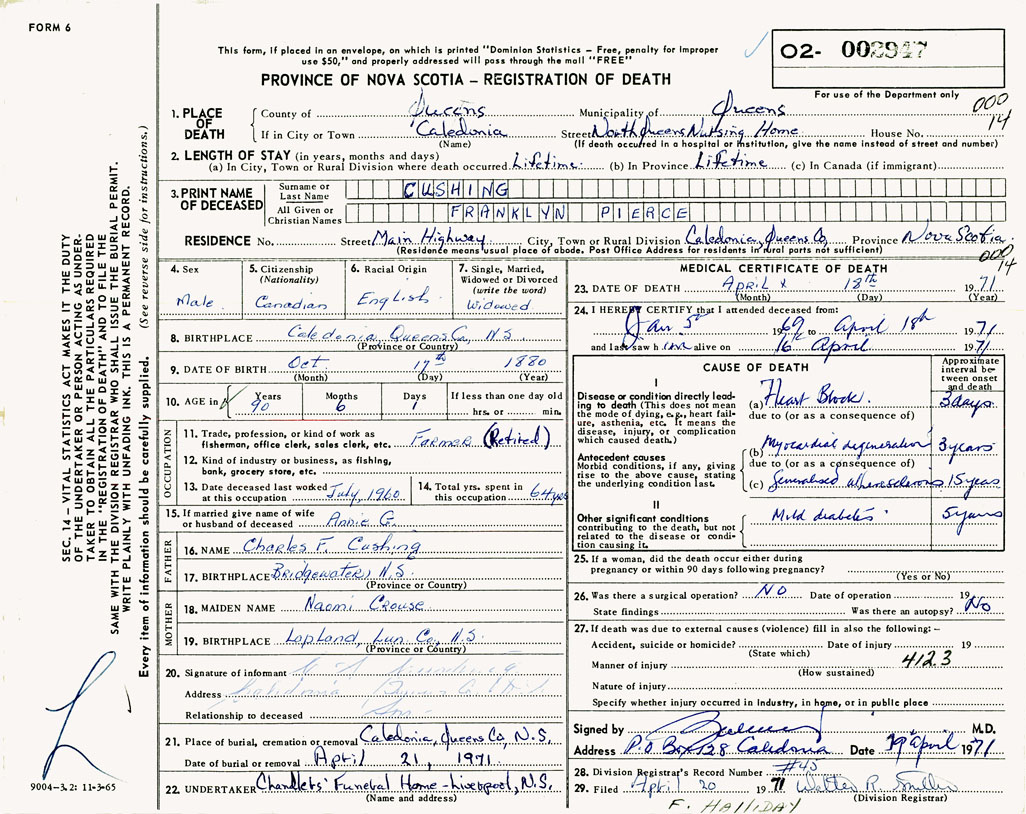 FORM 6
This form, if placed in an envelope, on which is printed "Dominion Statistics – Free, penalty for improper
use $50," and properly addressed will pass through the mail "FREE"
PROVINCE OF NOVA SCOTIA – REGISTRATION OF DEATH
02- 002947
For use of the Department only
000
14
1. PLACE OF DEATH
County of Queens Municipality of Queens
If in City or Town Caledonia Street North Queens Nursing Home House No.
(Name) (If death occurred in a hospital or institution, give the name instead of street and number)
2. LENGTH OF STAY (in years, months and days)
(a) In City, Town or Rural Division where death occurred Lifetime (b) In Province Lifetime (c) In Canada (if immigrant)
3. PRINT NAME OF DECEASED
Surname or Last Name CUSHING
All Given or Christian Names FRANKLYN PIERCE
RESIDENCE No. Street Main Highway City, Town or Rural Division Caledonia, Queens Co, Province Nova Scotia
(Residence means usual place of abode. Post Office Address for residents in rural parts not sufficient)
000
14
4. Sex Male
5. Citizenship (Nationality) Canadian
6. Racial Origin English
7. Single, Married, Widowed or Divorced (write the word) Widowed
8. BIRTHPLACE Caledonia Queens Co, N.S.
(Province or Country)
9. DATE OF BIRTH Oct. 17th 1880
(Month) (Day) (Year)
10. AGE in Years 90 Months 6 Days 1 If less than one day old hrs. or min.
OCCUPATION
11. Trade, profession, or kind of work as fisherman, office clerk, sales clerk, etc. Farmer (Retired)
12. Kind of industry or business, as fishing, bank, grocery store, etc.
13. Date deceased last worked at this occupation July, 1960
14. Total yrs. spent in this occupation 64 yrs
15. If married give name of wife or husband of deceased Annie G.
FATHER
16. NAME Charles F. Cushing
17. BIRTHPLACE Bridgewater, N.S.
(Province or Country)
MOTHER
18. MAIDEN NAME Naomi Crouse
19. BIRTHPLACE Lapland, Lun. Co., N.S.
(Province or Country)
20. Signature of informant
Address Caledonia
Relationship to deceased Son
21. Place of burial, cremation or removal Caledonia, Queens Co, N.S.
Date of burial or removal April 21, 1971
22. UNDERTAKER Chandlers' Funeral Home - Liverpool, N.S.
(Name and address)
MEDICAL CERTIFICATE OF DEATH
23. DATE OF DEATH April 18th 1971
(Month) (Day) (Year)
24. I HEREBY CERTIFY that I attended deceased from:
Jan 5th 1969 to April 18th 1971
and last saw him alive on 16th April 1971
CAUSE OF DEATH
Approximate interval between onset and death
I
Disease or condition directly leading to death (This does not mean the mode of dying, e.g., heart failure, asthenia, etc. It means the disease, injury, or complication which caused death.)
(a) Heart Block. 3 days
due to (or as a consequence of)
Antecedent causes
Morbid conditions, if any, giving rise to the above cause, stating the underlying condition last.
(b) Myocardial degeneration 3 years
due to (or as a consequence of)
(c) Generalised atherosclerosis 15 years
II
Other significant conditions contributing to the death, but not related to the disease or condition causing it.
Mild diabetes 5 years
25. If a woman, did the death occur either during pregnancy or within 90 days following pregnancy?
(Yes or No)
26. Was there a surgical operation? NO Date of operation 19
State findings Was there an autopsy? No
27. If death was due to external causes (violence) fill in also the following: –
Accident, suicide or homicide? Date of injury 19
(State which)
Manner of injury 4123
(How sustained)
Nature of injury
Specify whether injury occurred in industry, in home, or in public place
Signed by M.D.
Address P.O Box 128 Caledonia Date 19 April 1971
28. Division Registrar's Record Number #45
29. Filed April 20 1971 Walter R. Smith
(Division Registrar)
F. HALLIDAY
SEC. 14 – VITAL STATISTICS ACT MAKES IT THE DUTY
OF THE UNDERTAKER OR PERSON ACTING AS UNDER-
TAKER TO OBTAIN ALL THE PARTICULARS REQUIRED
IN THE "REGISTRATION OF DEATH" AND TO FILE THE
SAME WITH THE DIVISION REGISTRAR WHO SHALL ISSUE THE BURIAL PERMIT.
WRITE PLAINLY WITH UNFADING INK. THIS IS A PERMANENT RECORD.
Every item of information should be carefully supplied. (See reverse side for instructions.)
9004-3.2: 11-3-65